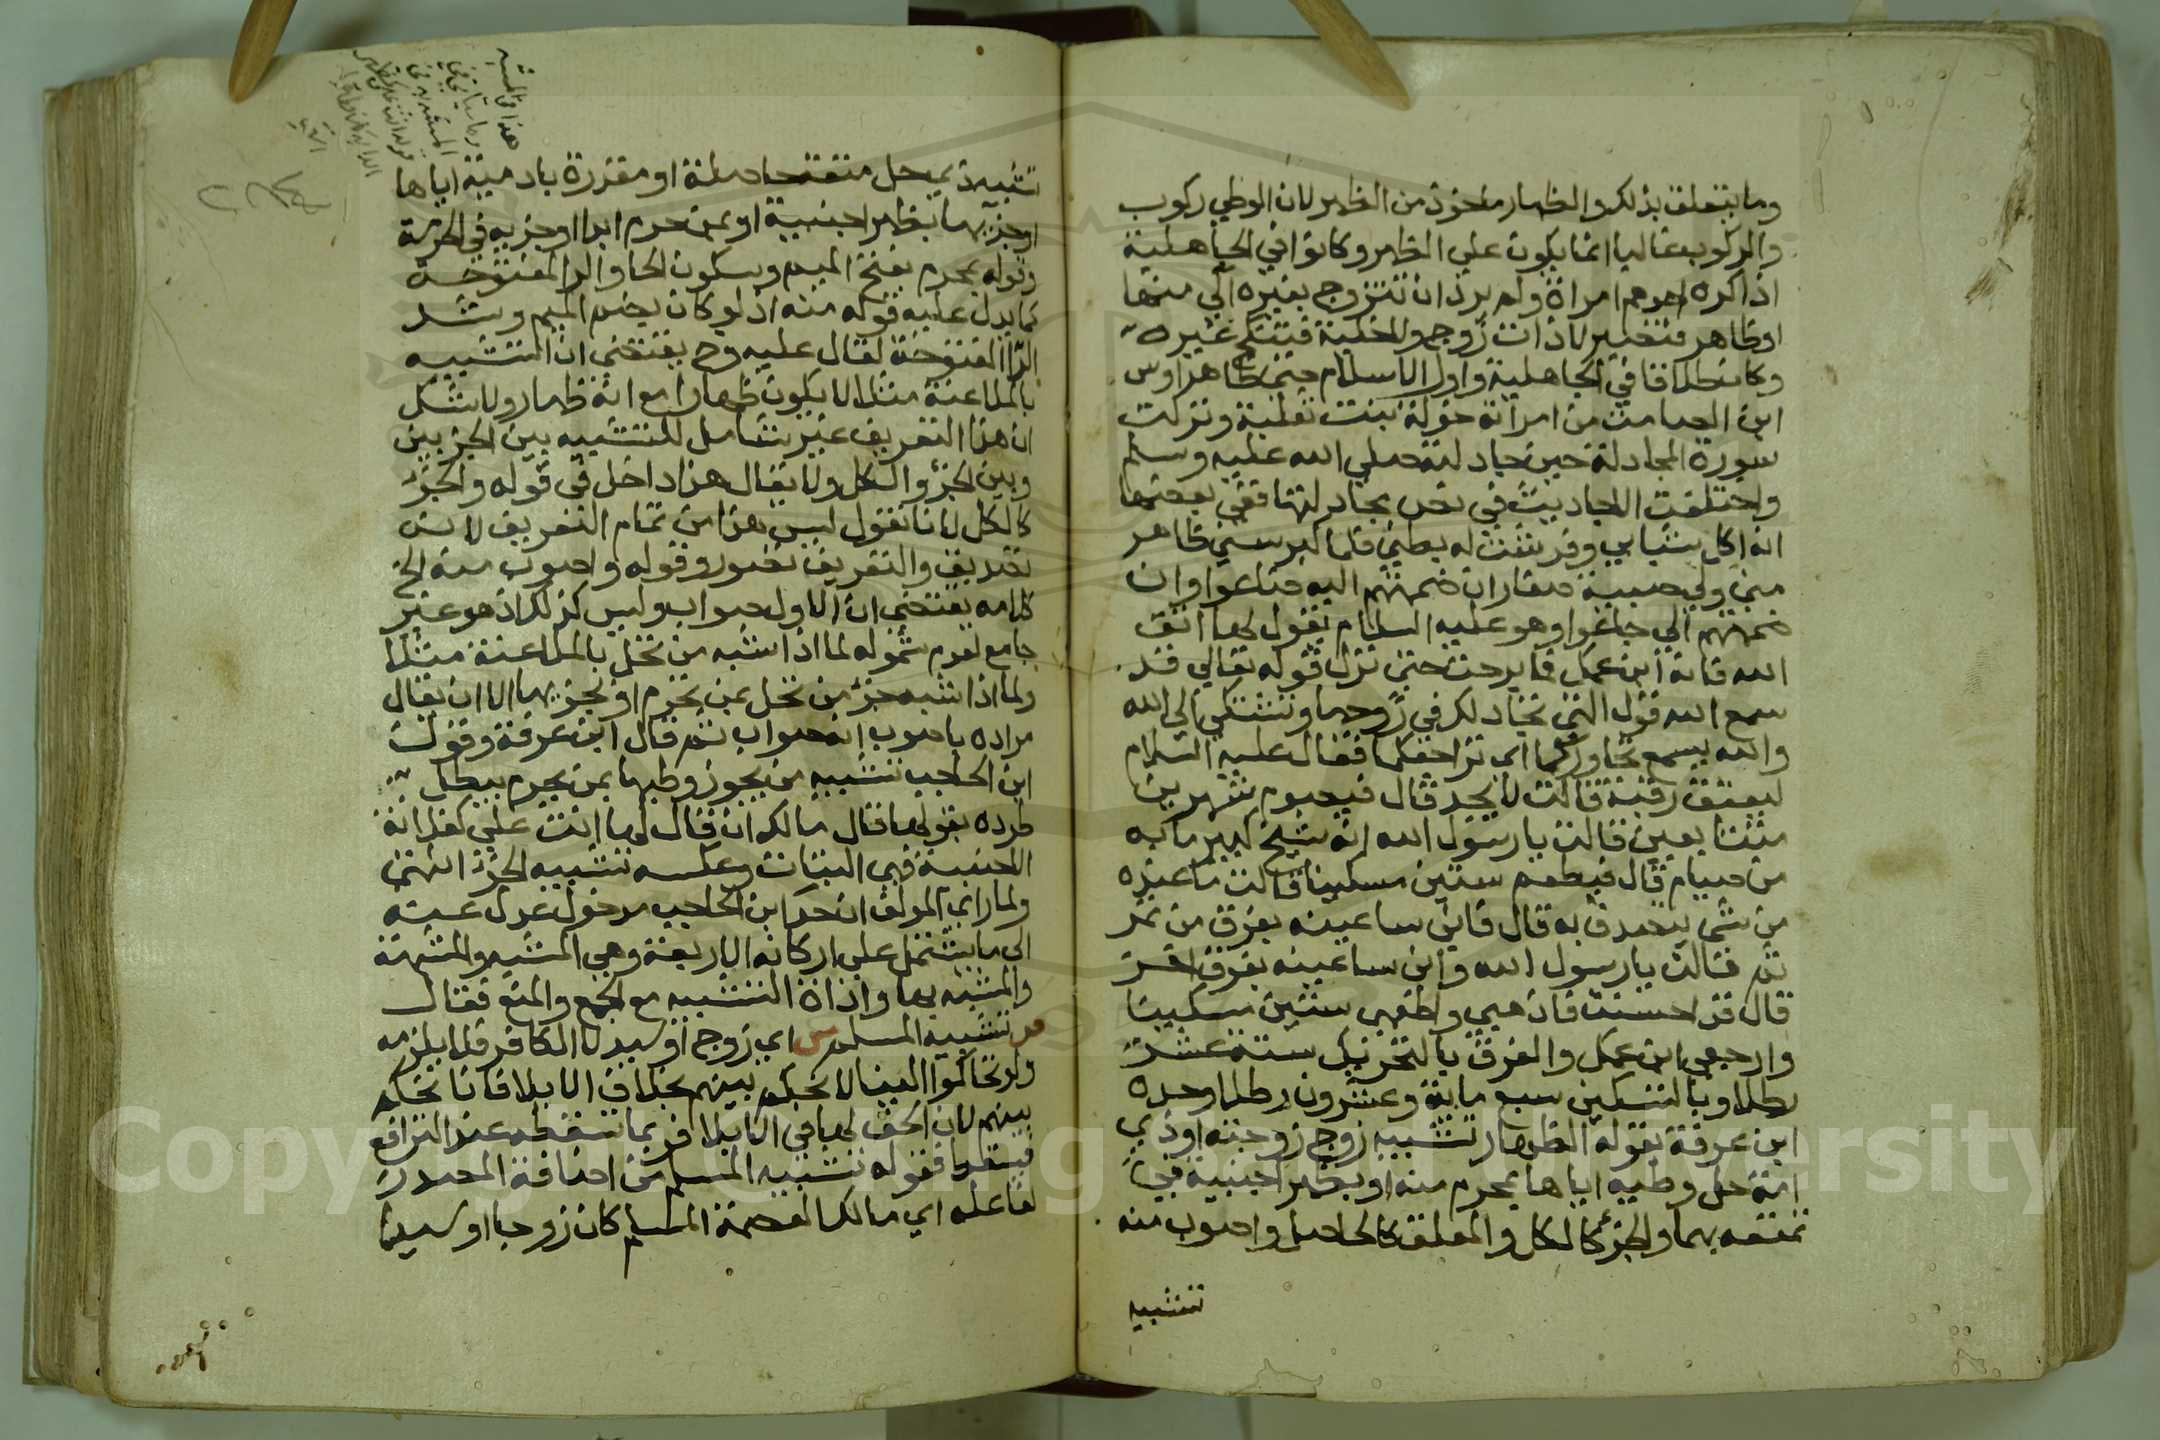 وما يتعلق بذلك والظهار ماخوذ من الظهر لان الوطي ركوب
والركوب غاليا انما يكون علي الظهر وكانوا في الجاهلية
اذا كره احدهم امراة ولم يرد ان تتزوج بغيره الي منها
او ظاهر فتصير لا ذات زوج ولا خلية فتنكح غيره
وكان طلاقا في الجاهلية واول الاسلام حتي ظاهر اوس
ابن الصامت من امراته خولة بنت ثعلبة ونزلت
سورة المجادلة حين جادلته صلي الله عليه وسلم
واختلفت الاحاديث في نص مجادلتها ففي بعضها
انه اكل شبابي وفرشت له بطني فلما كبر سني ظاهر
مني ولي صبية صغار ان ضممتهم اليه ضاعوا وان
ضممتهم الي جاعوا وهو عليه السلام يقول لها اتق
الله فانه ابن عمك فما برحت حتي نزل قوله تعالي قد
سمع الله قول التي تجادلك في زوجها وتشتكي الي الله
والله يسمع تحاوركما اي تراجعكما فقال عليه السلام
ليعتق رقبة قالت لا يجد قال فيصوم شهرين
متتابعين قالت يا رسول الله انه شيخ كبير ما به
من صيام قال فيطعم ستين مسكينا قالت ما عنده
من شي يتصدق به قال فاني ساعينه بعرق من تمر
ثم قالت يا رسول الله واني ساعينه بعرق اخر
قال قد احسنت فاذهبي واطعمي ستين مسكينا
وارجعي ابن عمك والفرق بالتحريك ستة عشر
رطلا وبالتسكين سبع ماية وعشرون رطلا وحده
ابن عرفة بقوله الظهار تشبيه زوج زوجته او ذي
امة حل وطيه اياها بمحرم منه او بظهر اجنبية في
تمتعه بهما والجزء كالكل والمعلق كالحاصل واصوب منه
تشبيه
هذا في المشبه
تشبيه ذي حل متعة حاصلة او مقدرة بادمية اياها
او جزيها بظهر اجنبية او بمن حرم ابدا او جزيه في الحرمة
وقوله بمحرم بفتح الميم وسكون الحا والرا المفتوحة
كما يدل عليه قوله منه اذ لو كان بضم الميم وشد
الرا المفتوحة لقال عليه وح يقتضي ان التشبيه
بالملاعنة مثلا لا يكون ظهارا مع انه ظهار ولا شك
ان هذا التعريف غير شامل للتشبيه بين الجزيين
وبين الجزء والكل ولا يقال هذا داخل في قوله والجزء
كالكل لانا نقول ليس هذا من تمام التعريف لانه
تصديق والتعريف تصور وقوله واصوب منه الخ
كلامه يقتضي ان الاول صواب وليس كذلك اذ هو غير
جامع لعدم شموله لما اذا شبه من تحل بالملاعنة مثلا
ولما اذا شبه جزء من تحل بمن تحرم او بجزيها الا ان يقال
مراده باصوب انه صواب ثم قال ابن عرفة وقول
ابن الحاجب تشبيه من يجوز وطيها بمن يحرم يبطل
طرده بقولها قال مالك ان قال لها انت علي كفلانة
الاجنبية فهي البتات وعكسه تشبيه الجزء انتهي
ولما راي المولف ان حد ابن الحاجب مدخول عدل عنه
الي ما يشتمل علي اركانه الاربعة وهي المشبه والمشبهة
والمشبه بها واداة التشبيه مع الجمع والمنع فقال
ص تشبيه المسلم ش اي زوج او سيد لا الكافر فلا يلزمه
ولو تحاكموا الينا لا نحكم بينهم بخلاف الايلا فانا نحكم
بينهم لان الحق لها في الايلا فربما تسقطه عند الترافع
فيسقط فقوله تشبيه المسلم من اضافة المصدر
لفاعله اي مالك العصمة المسلم كان زوجا او سيدا